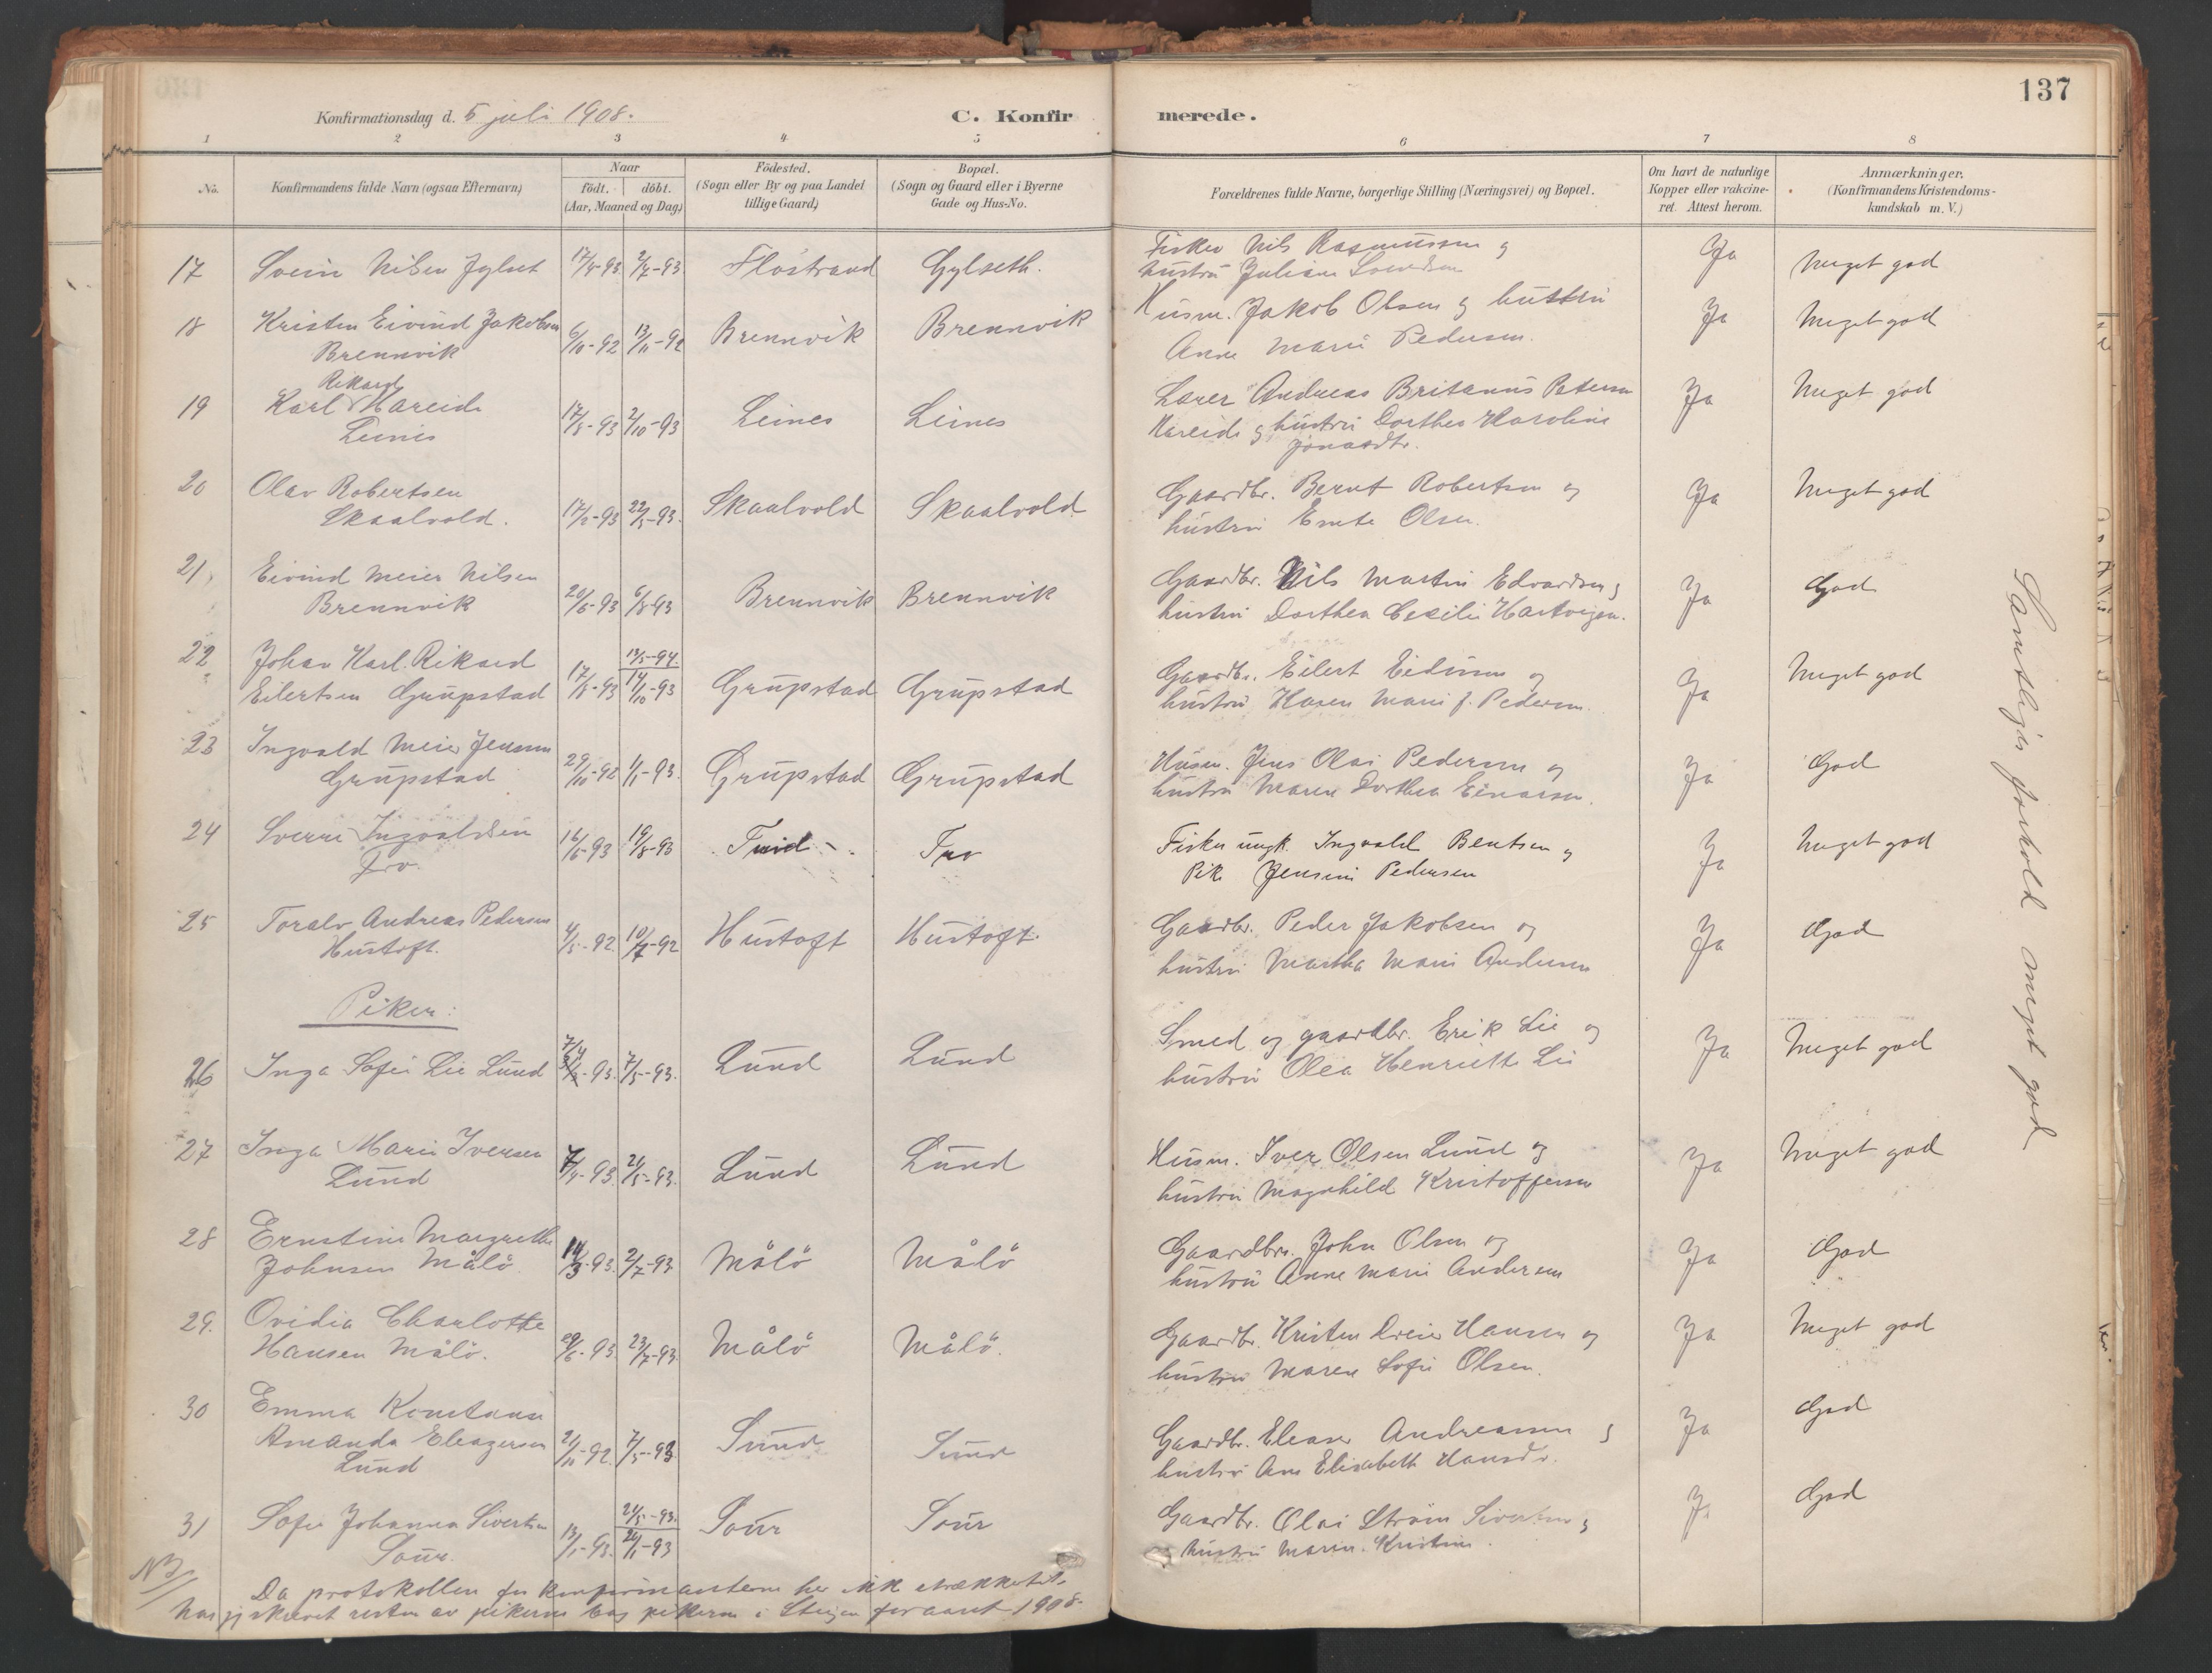 137
Konfirmationsdag d. 5 juli 1908.
C. Konfirmerede.
1 2 3 4 5 6 7 8
No.
Konfirmandens fulde Navn (ogsaa Efternavn)
Naar
födt. döbt.
(Aar, Maaned og Dag)
Födested.
(Sogn eller By og paa Landet
tillige Gaard)
Bopæl.
(Sogn og Gaard eller i Byerne
Gade og Hus-No.
Forældrenes fulde Navne, borgerlige Stilling (Næringsvei) og Bopæl.
Om havt de naturlige
Kopper eller vakcine-
ret. Attest herom.
Anmærkninger.
(Konfirmandens Kristendoms-
kundskab m. V.)
17 Svein Nilsen Jylset 17/4-93 2/7-93 Flostrand Gylseth. Fisker Nils Rasmussen og Ja Meget god
hustru Juliane Svendsen
18 Kristen Eivind Jakobsen 6/10-92 13/11-92 Brennvik Brennvik Husm. Jakob Olsen og hustru Ja Meget god
Brennvik Anne Marie Pedersen.
Rikard
19 Karl Hareide 17/8-93 2/10-93 Leines Leines Lærer Andreas Britanus Petersen Ja Meget god
Leines Hareide og hustru Dorthea Karoline
Jonasdtr.
20 Olav Robertsen 17/2-93 22/5-93. Skaalvold Skaalvold Gaardbr. Bernt Robertsen og Ja Meget god
Skaalvold. hustru Olsen.
21 Eivind Meier Nilsen 20/6-93 6/8-93 Brennvik Brennvik Gaardbr. Nils Martin Edvardsen og Ja God
Brennvik hustru Dorthea Cesilie Hartvigsen.
22 Johan Karl Rikard 17/8-93 13/5-94. 14/10-93 Grupstad Grupstad Gaardbr. Eilert Ja Meget god
Eilertsen Grupstad hustru Maren Marie J. Pedersen.
23 Ingvald Meier Jensen 29/10-92 1/1-93. Grupstad Grupstad Husm. Jens Olai Pedersen og Ja God
Grupstad hustru Maren Dorthea Einarsen.
24 Sverre Ingvaldsen 16/6-93 19/8-93 Ja Meget god
Fisker ungk. Ingvald Bentsen og
Pike Jensine Pedersen
25 Toralv Andreas Pedersen 4/5-92. 10/7-92 Hustoft Hustoft Gaardbr. Peder Jakobsen og Ja God
Hustoft. hustru Martha Marie Andersen
Piker:
26 Inga Sofie Lie Lund 7/4-93. 7/5-93. Lund Lund Smed og gaardbr. Erik Lie og Ja Meget god
hustru Olea Henriette Lie
27 Inga Marie Iversen 7/4-93. 21/5-93. Lund Lund Husm. Iver Olsen Lund og Ja Meget god
Lund hustru Magnhild Kristoffersen
28 Ernstine Margrethe 14/3-93. 2/7-93 Målö Målö Gaardbr. John Olsen og Ja God
Johnsen Målö hustru Anne Marie Andersen
29. Ovidia Charlotte 29/6-93 23/7-93. Målö Målö. Gaardbr. Kristen Dreier Hansen og Ja Meget god
Hansen Målö. hustru Maren Sofie Olsen.
30 Emma Konstanse 21/11-92. 7/5-93 Sund Sund Gaardbr. Eleaser Andreassen og Ja God
Amanda Eleazersen hustru Ane Elisabeth Hansdr.
Lund
31 Sofie Johanna Sivertsen 13/1-93. 24/5-93. 24/1-93 Sour Sour Gaardbr. Olai Ström Sivertsen og Ja God
Sour. hustru Maren Kristine.
Samtliges forhold meget god
NB
Da protokollen for konfirmanterne her ikke strækker til,
har jeg skrevet resten av pikerne bag pikerne i Steigen for aaret 1908.